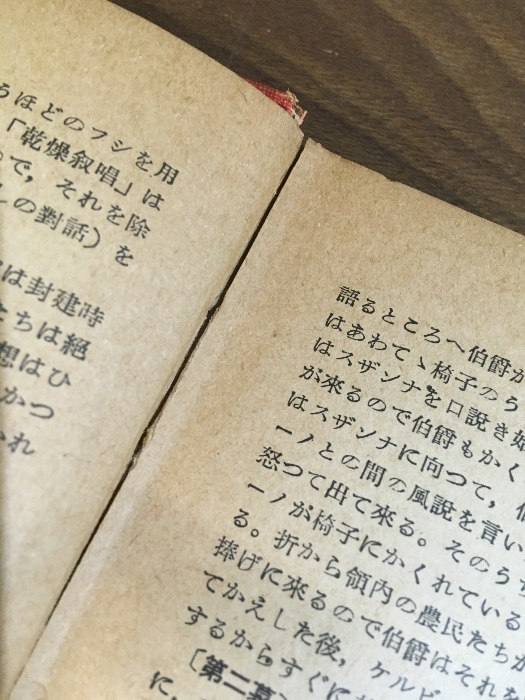 うほどのフシを用
「乾燥叙唱」は
で，それを除
の對話）を
は封建時
ちは絕
想はひ
かつ
れ
語るところへ伯爵が
はあわてゝ椅子のう
はスザンナを口説き始
が來るので伯爵もかく
はスザンナに向つて，
ーノとの間の風說を言い
怒つて出て來る。そのう
ーノが椅子にかくれている
る。折から領内の農民たちが
捧げに來るので伯爵はそれを
てかえした後，ケル
するからすぐに
〔第二幕
に，